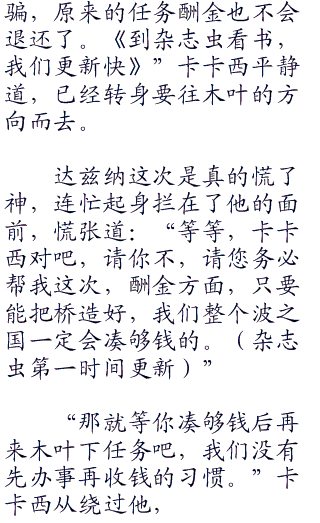 骗，原来的任务酬金也不会
退还了。《到杂志虫看书，
我们更新快》”卡卡西平静
道，已经转身要往木叶的方
向而去。
达兹纳这次是真的慌了
神，连忙起身拦在了他的面
前，慌张道：“等等，卡卡
西对吧，请你不，请您务必
帮我这次，酬金方面，只要
能把桥造好，我们整个波之
国一定会凑够钱的。（杂志
虫第一时间更新）”
“那就等你凑够钱后再
来木叶下任务吧，我们没有
先办事再收钱的习惯。”卡
卡西从绕过他，